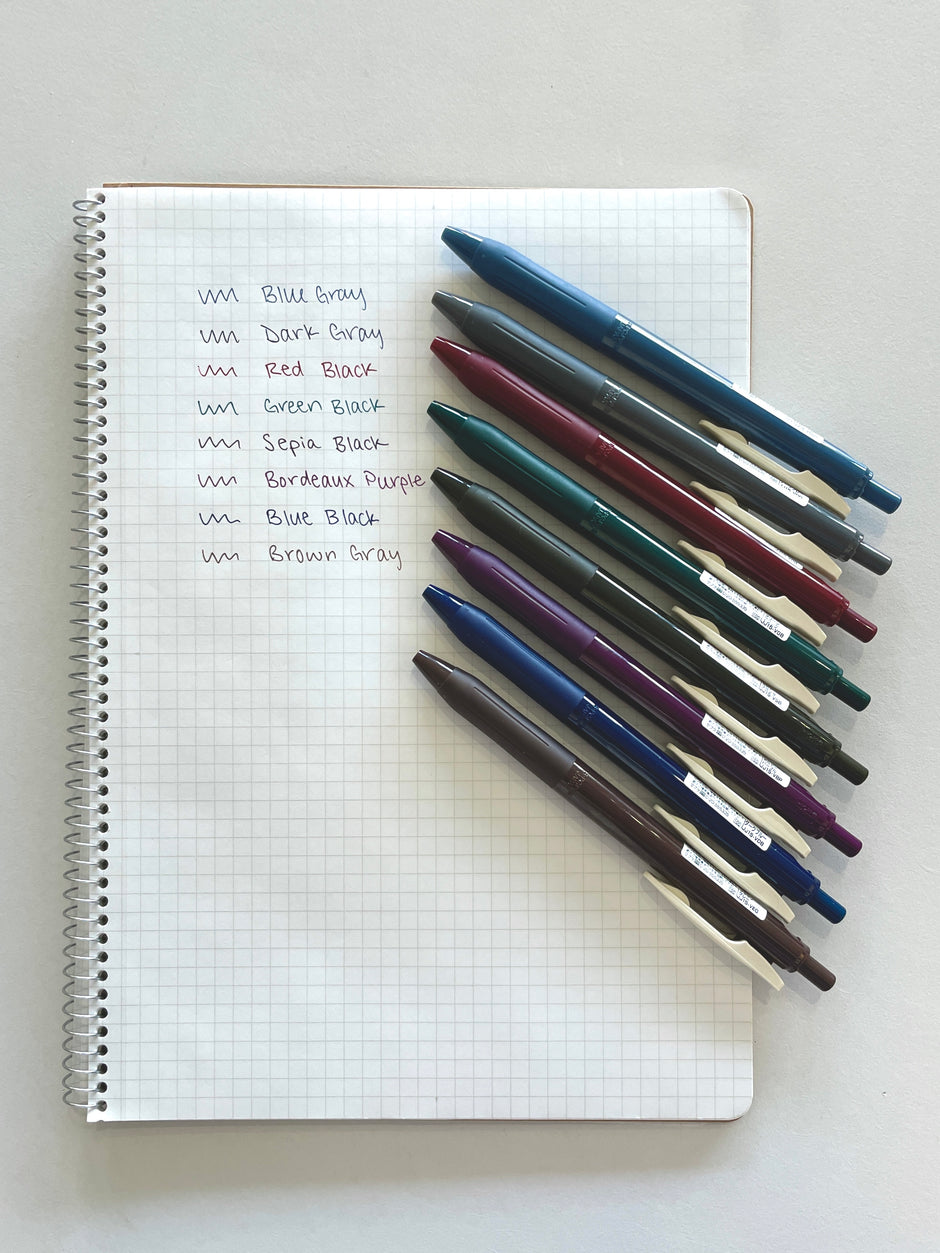 Blue Gray
Dark Gray
Red Black
Green Black
Sepia Black
Bordeaux Purple
Blue Black
Brown Gray